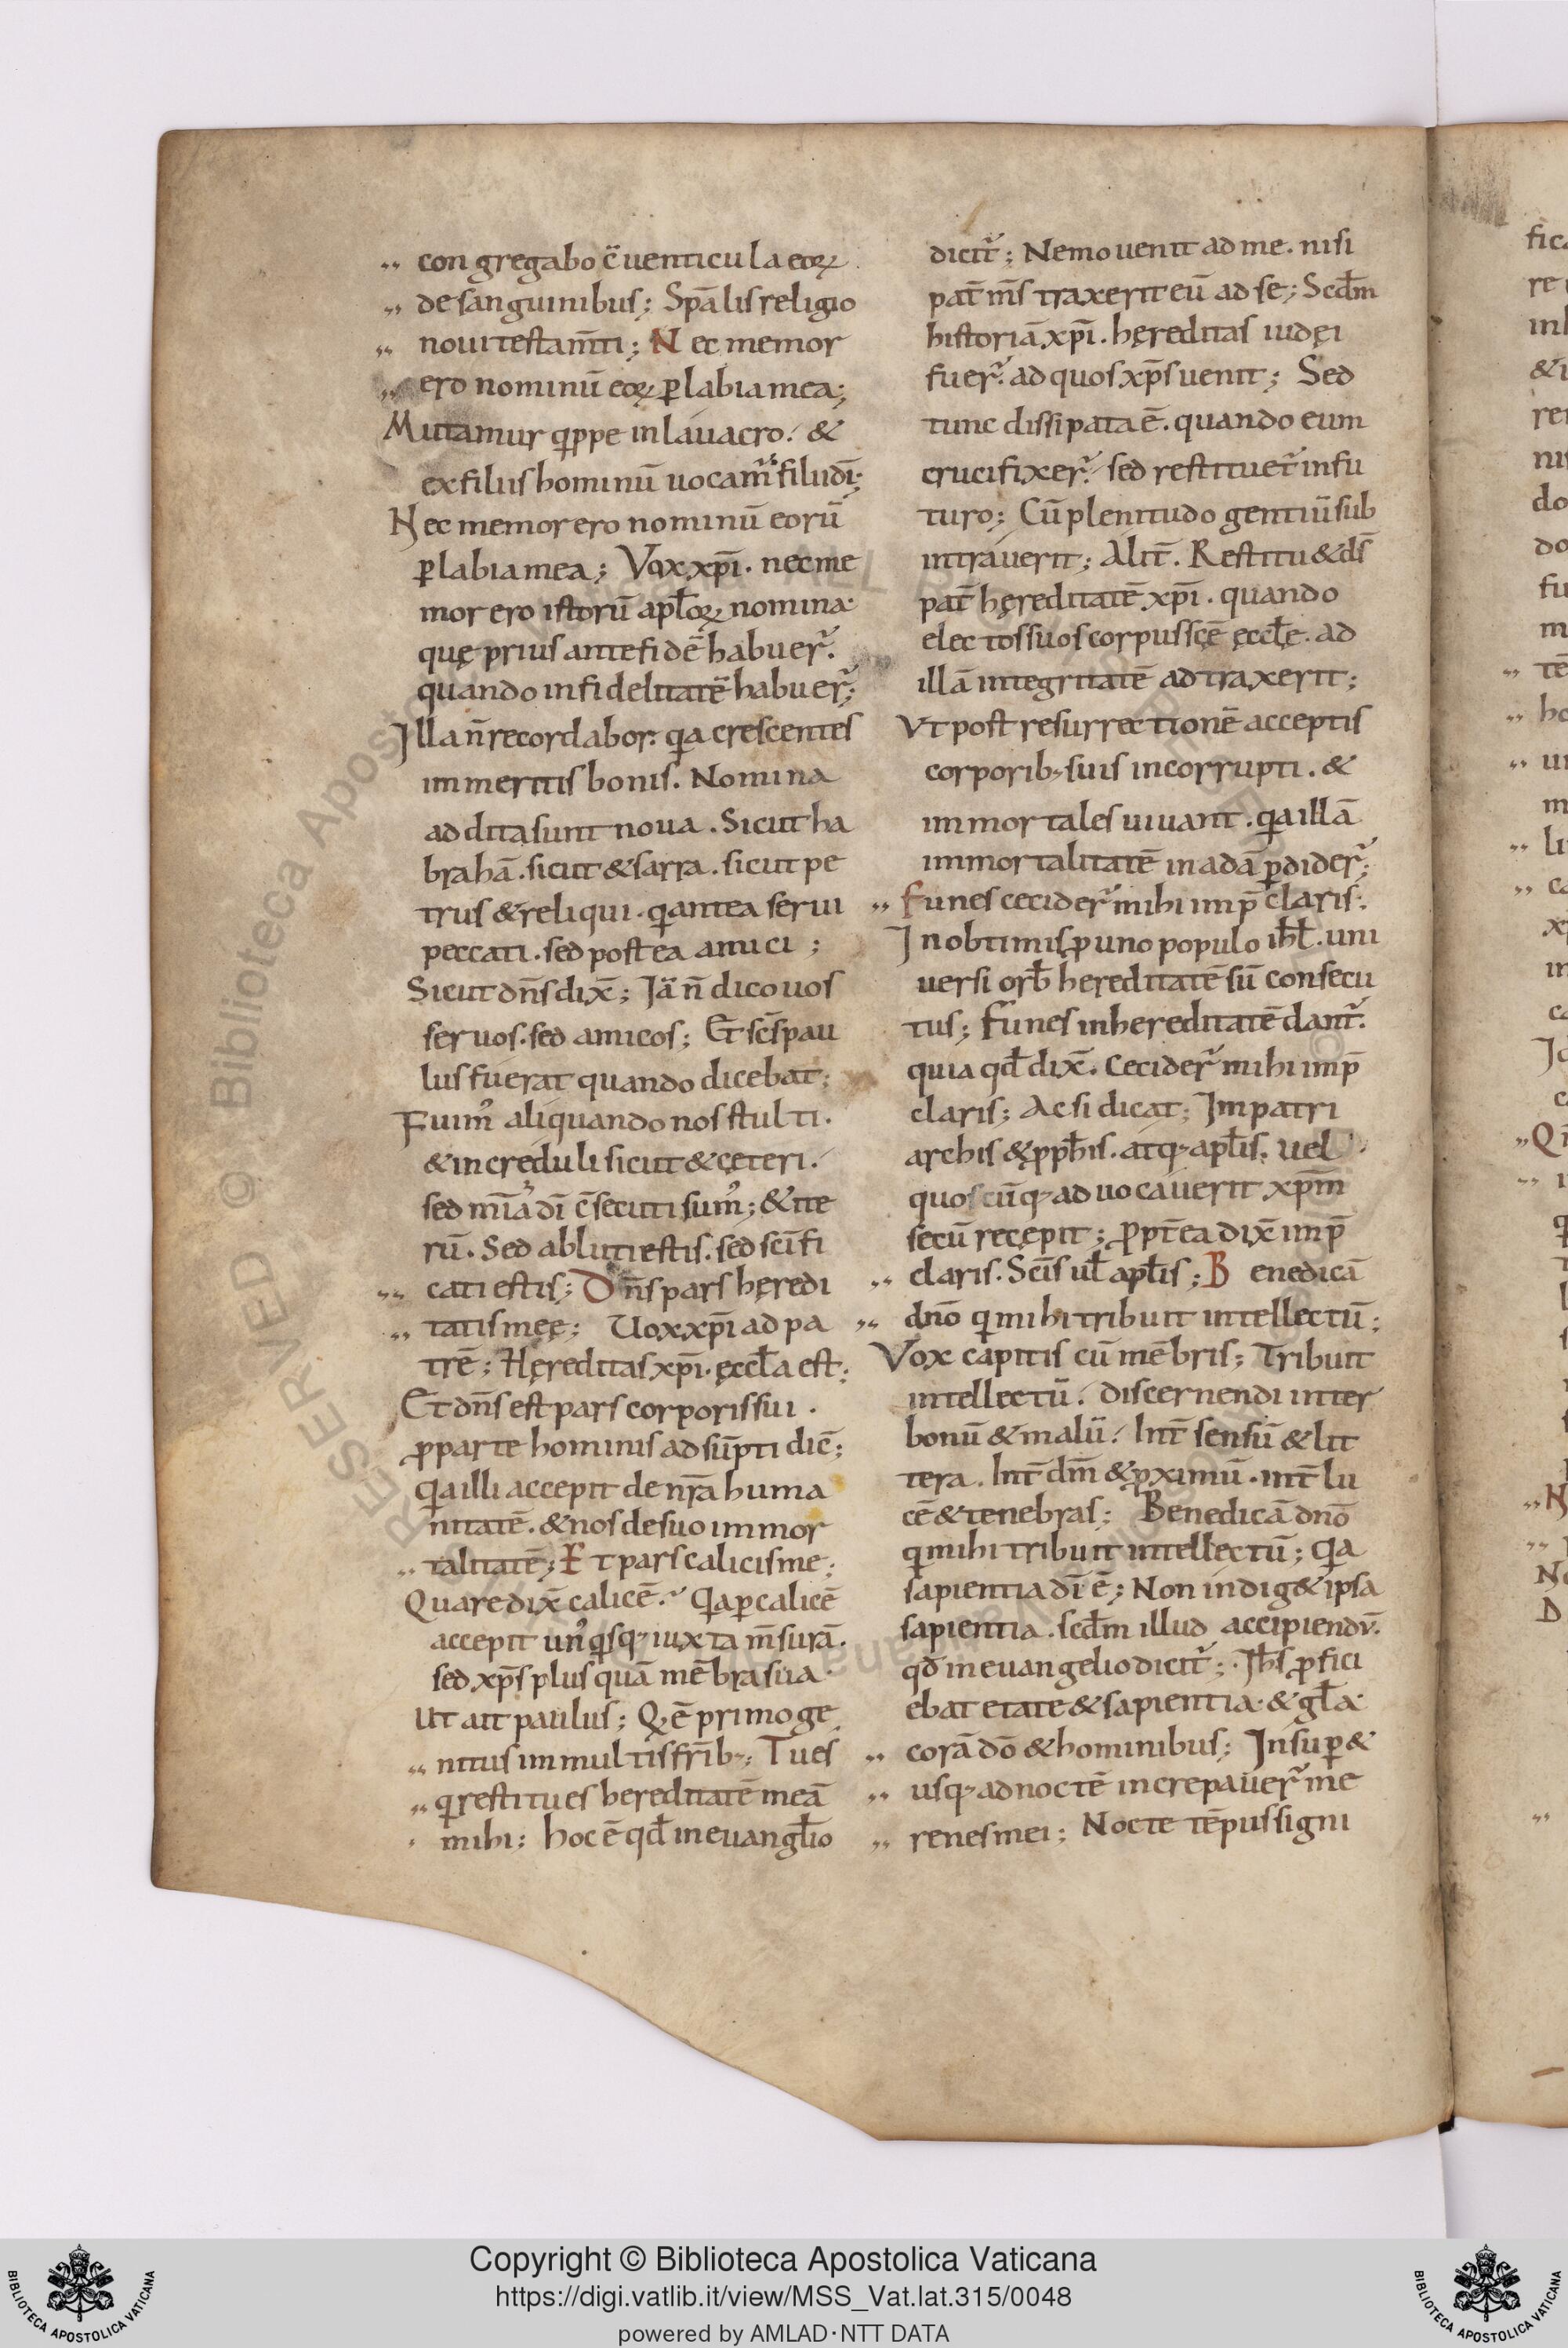 congregabo c̄uenticula eoꝝ
de sanguinibus; Sp̄alis religio
noui testam̄ti; Nec memor
ero nominū eoꝝ ꝑ labia mea;
Mutamur qippe in lauacro. &
ex filiis hominū uocam̄ filii dī;
Nec memor ero nominū eorū
ꝑ labia mea; Vox xp̄i. nec me
mor ero istorū apłoꝝ nomina.
quę prius ante fidē habuer̄.
quando infidelitatē habuer̄;
Illa n̄ recordabor. qia crescentes
im meritis bonis. Nomina
addita sunt noua. Sicut ha
brahā. sicut & sarra. sicut pe
trus & reliqui. qi antea serui
peccati. sed postea amici;
Sicut dn̄s dix̄; Iā n̄ dico uos
seruos. sed amicos; Et sc̄s pau
lus fuerat quando dicebat;
Fuim᾽ aliquando nos stulti.
& increduli sicut & cęteri.
sed mīa dī c̄secuti sum᾽; & ite
rū. Sed abluti estis. sed sc̄ifi
cati estis; Dn̄s pars hęredi
tatis meę; Uox xp̄i ad pa
trē; Hęreditas xp̄i. ęccła est;
Et dn̄s est pars corporis sui.
ꝓ parte hominis adsūpti dic̄;
Qia illi accepit de nr̄a huma
nitatē. & nos de suo immor
talitatē; Et pars calicis me;
Quare dix̄ calicē. Qia ꝑ calicē
accepit un᾽qisq; iuxta m̄surā.
sed xp̄s plus quā mēbra sua.
Ut ait paulus; Q ē primoge
nitus im multis fr̄ib;; Tu es
qi restitues hereditatē meā
mihi; hoc ē qđ in euangłio
dicit̄; Nemo uenit ad me. nisi
pat̄ m̄s traxerit eū ad se; Scđm
historiā xp̄i. hęreditas iudęi
fuer̄. ad quos xp̄s uenit; Sed
tunc dissipata ē. quando eum
crucifixer̄. sed restituet̄ in fu
turo; Cū plenitudo gentiū sub
intrauerit; Alit̄. Restitu& dś
pat̄ hęreditatē xp̄i. quando
electos suos corpus scę̄ ęccłę. ad
illā integritatē adtraxerit;
Vt post resurrectionē acceptis
corporib; suis incorrupti. &
immortales uiuant. qia illā
immortalitatē in adā ꝑdider̄;
Funes cecider̄ mihi im p̄claris;
In obtimis ꝓ uno populo ihł. uni
uersi orb̄ hereditatē sū consecu
tus; Funes in hereditatē dant̄.
quia qđ dix̄. Cecider̄ mihi im p̄
claris; Ac si dicat; Im patri
archis & ꝓph̄is. atq; apłis. uel
quoscūq; aduocauerit xp̄m
secū recępit; ꝓpt̄ea dix̄ im p̄
claris. Sc̄is uł apłis; Benedicā
dn̄o qi mihi tribuit intellectū;
Vox capitis cū mēbris; Tribuit
intellectū. discernendi inter
bonū & malū. Int̄ sensū & lit
tera. Int̄ dm̄ & ꝓximū. int̄ lu
cē & tenebras; Benedicā dn̄o
qi mihi tribuit intellectū; Qia
sapientia dī ē; Non indig& ipsa
sapientia. scđm illud accipiendū.
qđ in euangelio dicit̄; Ihs̄ ꝓfici
ebat etate & sapientia. & gła.
corā dō & hominibus; Insuꝑ &
usq; ad noctē increpauer̄ me
renes mei; Nocte tēpus signi
Copyright © Biblioteca Apostolica Vaticana
https://digi.vatlib.it/view/MSS_Vat.lat.315/0048
powered by AMLAD·NTT DATA
BIBLIOTECA APOSTOLICA VATICANA
BIBLIOTECA APOSTOLICA VATICANA